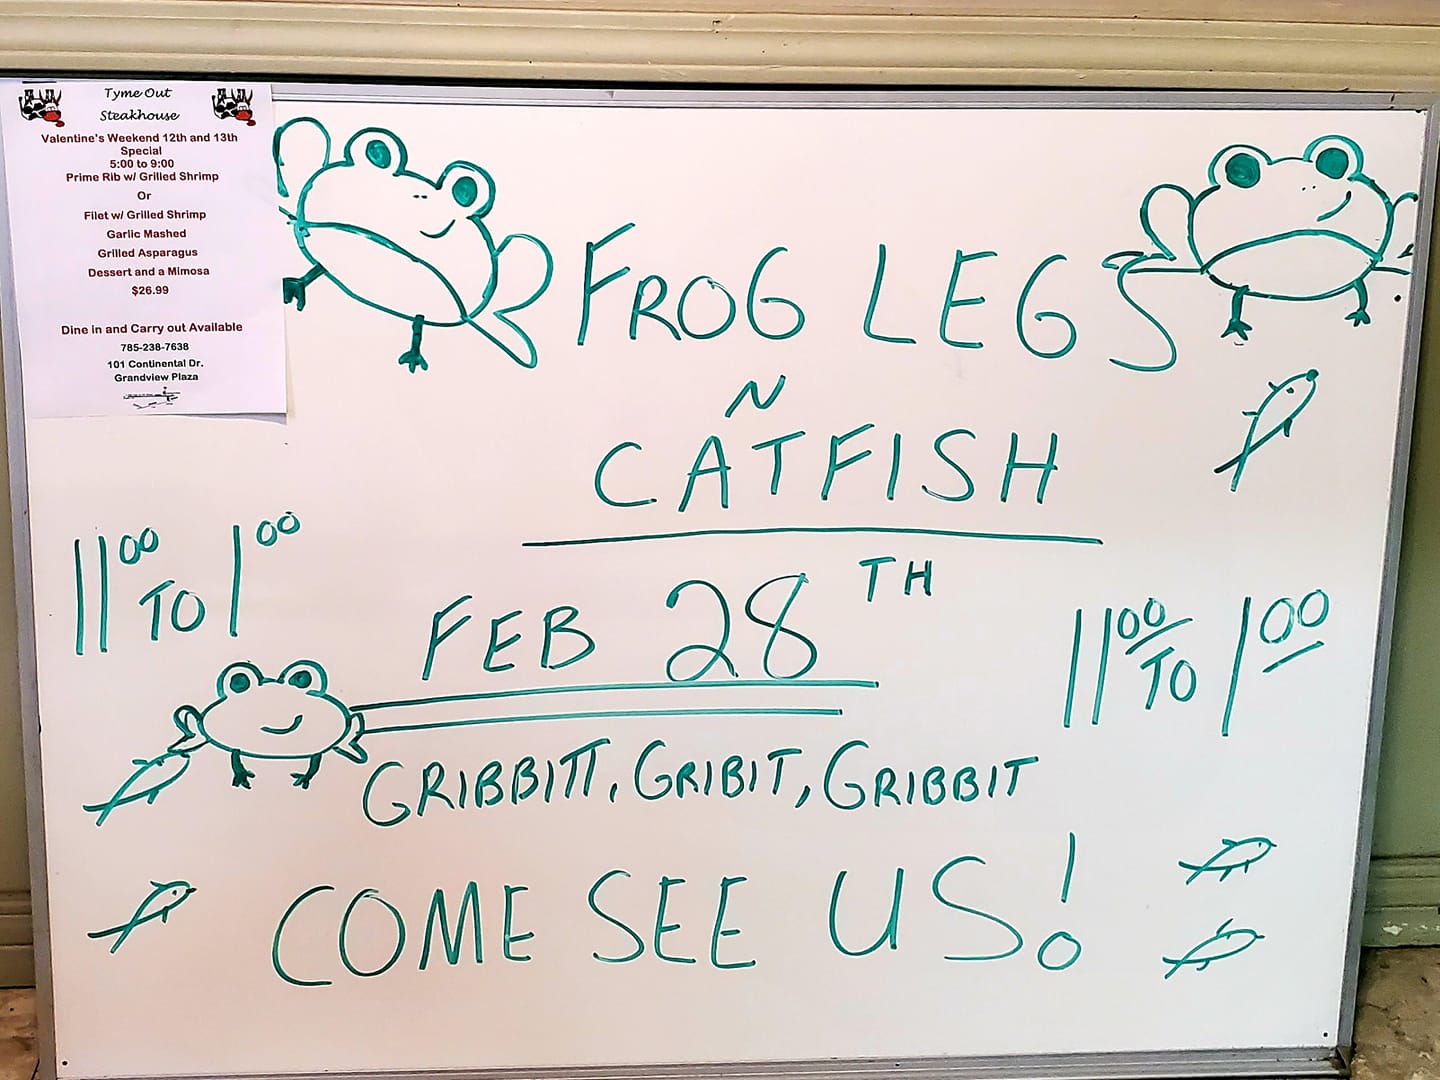 Tyme Out
Steakhouse
Valentine's Weekend 12th and 13th
Special
5:00 to 9:00
Prime Rib w/ Grilled Shrimp
Or
Filet w/ Grilled Shrimp
Garlic Mashed
Grilled Asparagus
Dessert and a Mimosa
$26.99
Dine in and Carry out Available
785-238-7638
101 Continental Dr.
Grandview Plaza
FROG LEGS
N
CATFISH
11 00 TO 1 00
FEB 28TH
11 00 TO 1 00
GRIBBITT, GRIBIT, GRIBBIT
COME SEE US!